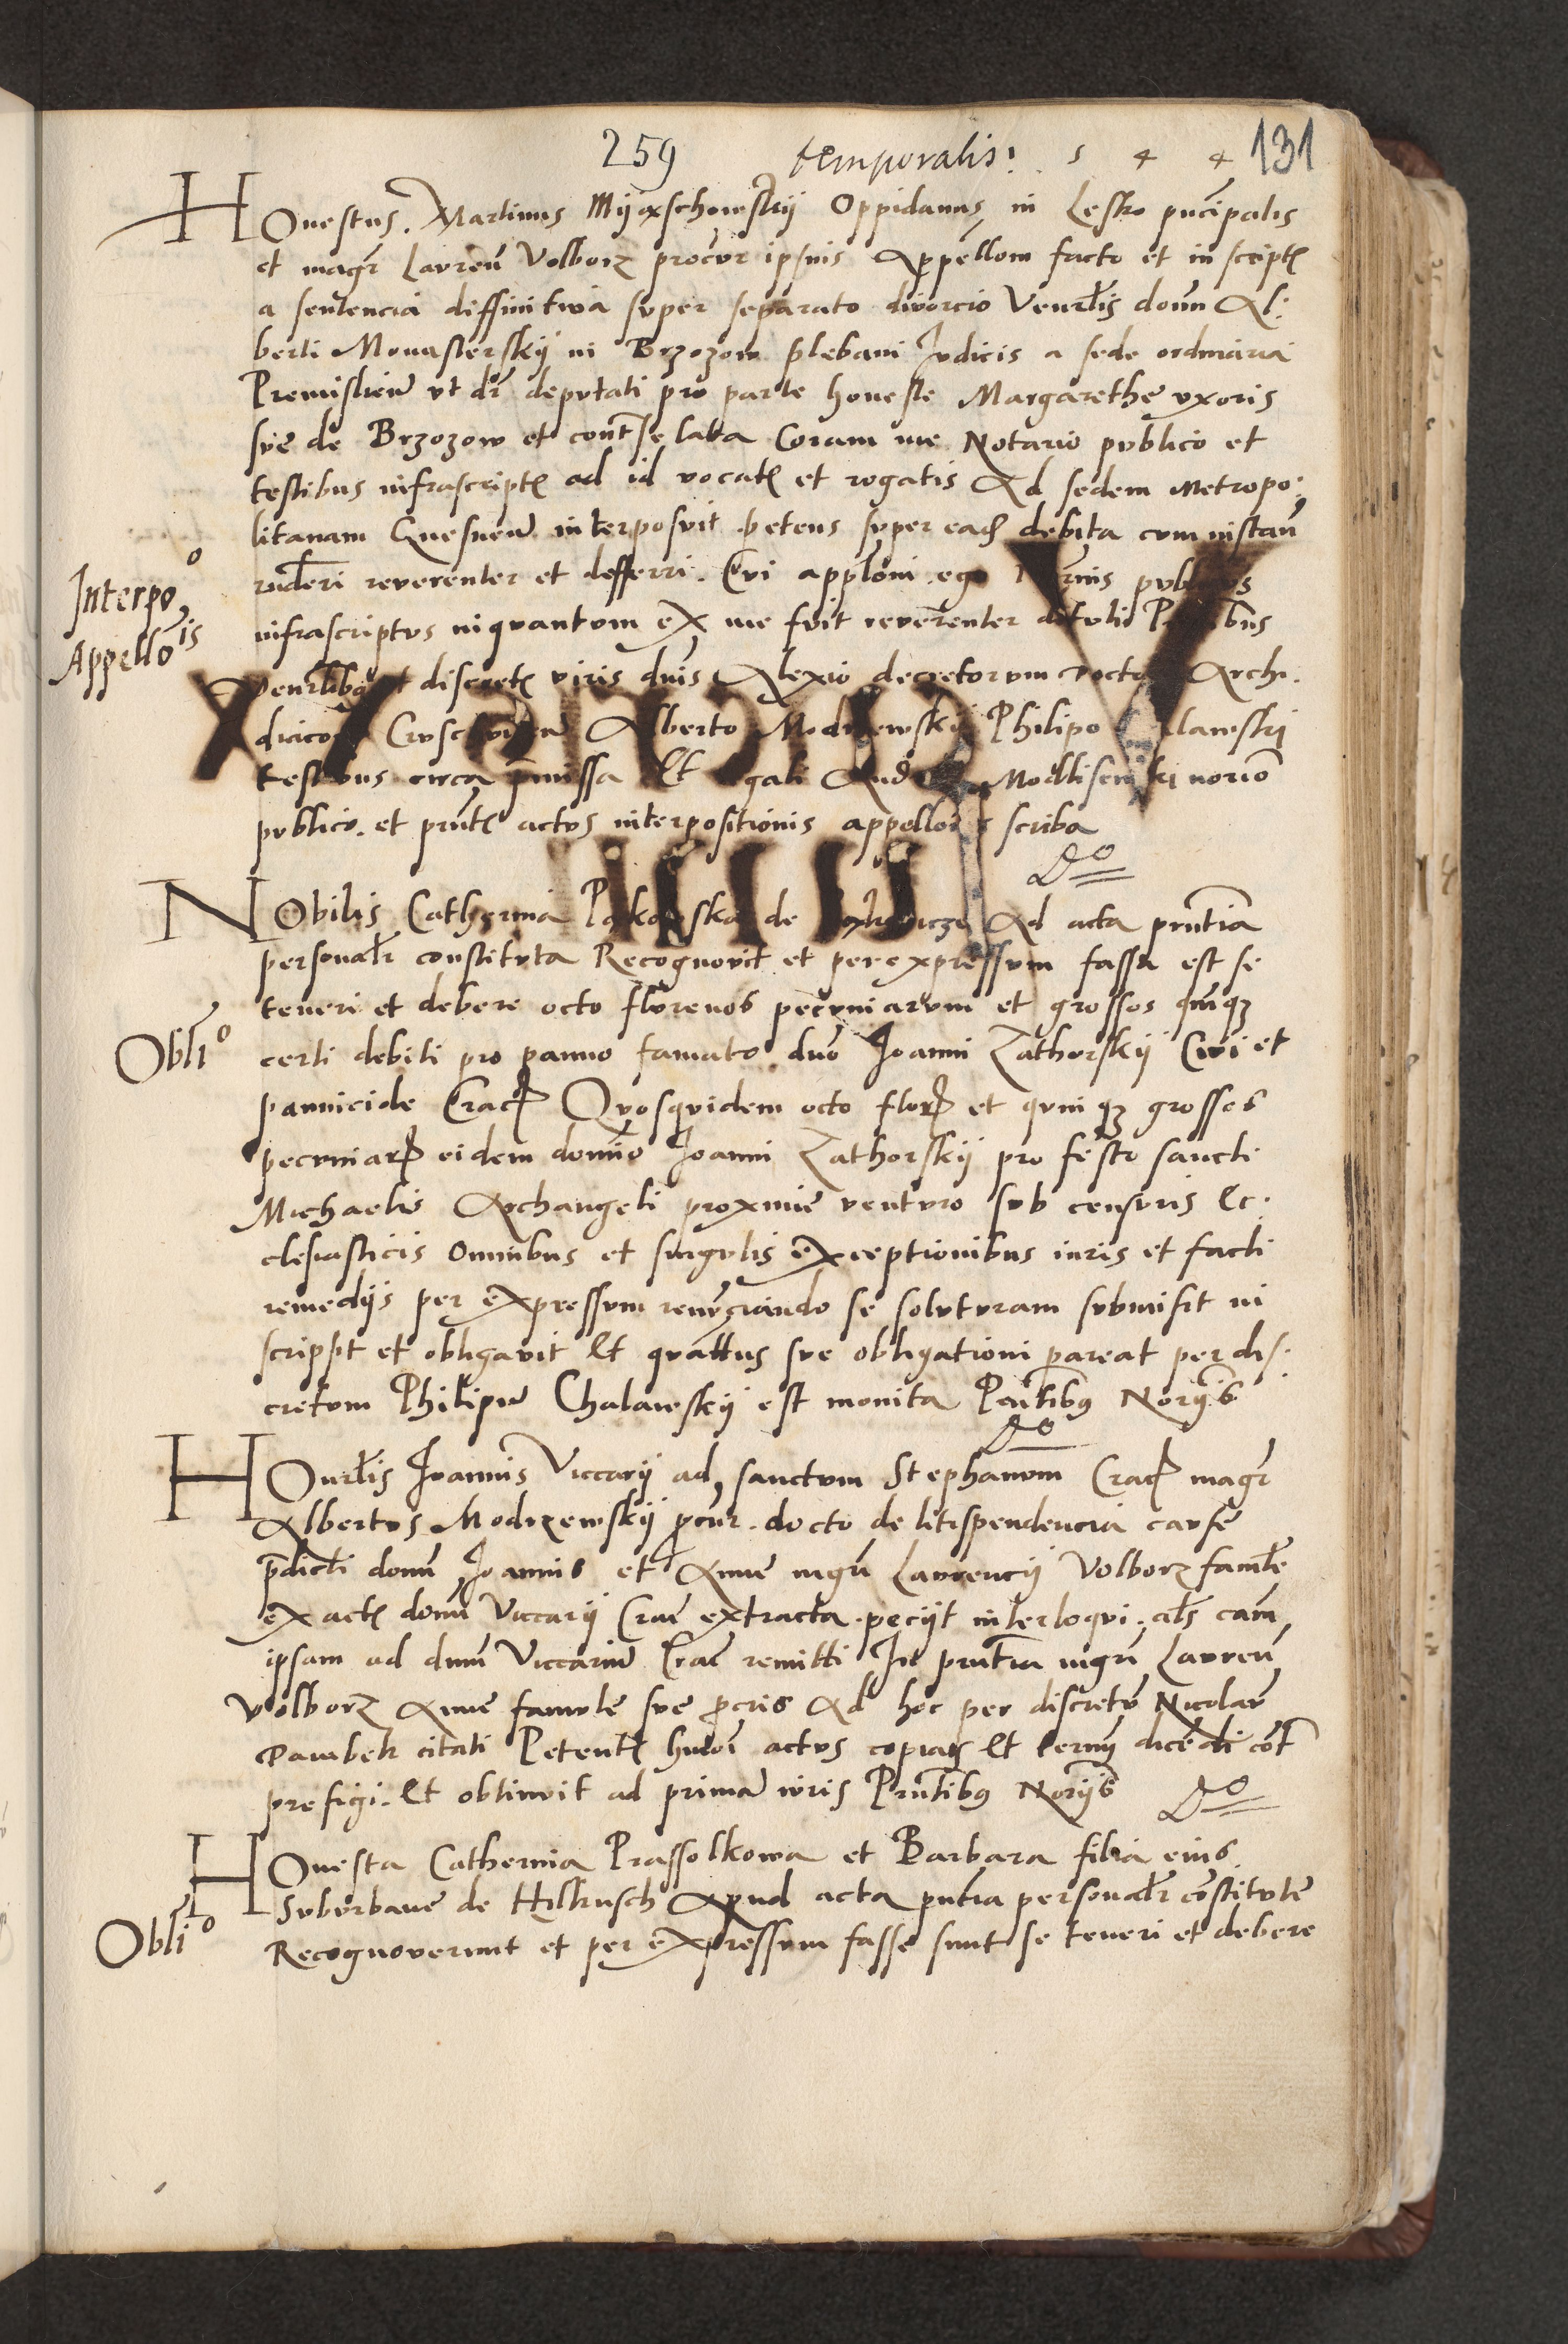 259 temporalis 5 4 4 131
Honestus Martinus Myxschowskij Oppidanus in Lesko pncipalis
et magr Lauren Volborz procur ipsius Appellom facto et in script
a sentencia diffinitiva super separato divorcio Venrlis domi Al:
berti Monasterskij in Brzozow plebani Judicis a sede ordinaria
Premislien ut dr deputati pro parte honeste Margarethe uxoris
sue de Brzozow et cont se lata Coram me Notario publico et
testibus infrascript ad id vocat et rogatis Ad sedem Metropo:
litanam Gnesnen interposuit petens super ead debita cum instan
rnderi reverenter et defferri. Cui applom ego publicus
infrascriptus inquantum ex me fuit reverenter detuli
Interpo o
Appello is
Venrlibus et discret viris dnis Alexio decretorum doctore Archi.
dicico Alberto Modrzewskij Philipo
testibus circa pmissa Et norio
publico. et pnt actus interpositionis appellois scriba
Do
Nobilis Catherina de Ad acta pntia
personalr constituta Recognovit et per expressum fassa est se
teneri et debere octo florenos pecuniarum et grossos quinq
Oblio
certi debiti pro panno famato dno Joanni Zathorskij Civi et
pannicide Crac Quosquidem octo flor et quinq grossos
pecuniar eidem domino Joanni Zathorskij pro festo sancti
Michaelis Archangeli proxime venturo sub censuris Ec.
clesiasticis Omnibus et singulis exceptionibus iuris et facti
remedijs per expressum renunciando se soluturam submisit in
scripsit et obligavit Et quattus sue obligationi pareat per dis.
cretum Philipu Chalawskij est monita Pntibus Norijs
Do
Honrlis Joannis Viccarij ad sanctum Stephanum Crac magr
Albertus Modrzewskij pcur. docto de litispendencia cause
pdicti domi Joannis et Anne mgri Laurencij Volborz famle
ex actis domi Viccarij Crac extracta. peciit interloqui. als cam
ipsam ad dnum Viccarium Crac remitti In pntia mgri Lauren
Volborz Anne famule sue pcris Ad hoc per discretu Nicolau
Dambek citati Petent huioi actus copiam Et termi dicendi cont
prefigi. Et obtinuit ad prima iuris Pntibus Norijs Do
Honesta Catherina Prassolkowa et Barbara filia eius
Suburbane de Hilkusch Apud acta pntia personalr constitute
Oblio
Recognoverunt et per expressum fasse sunt se teneri et debere